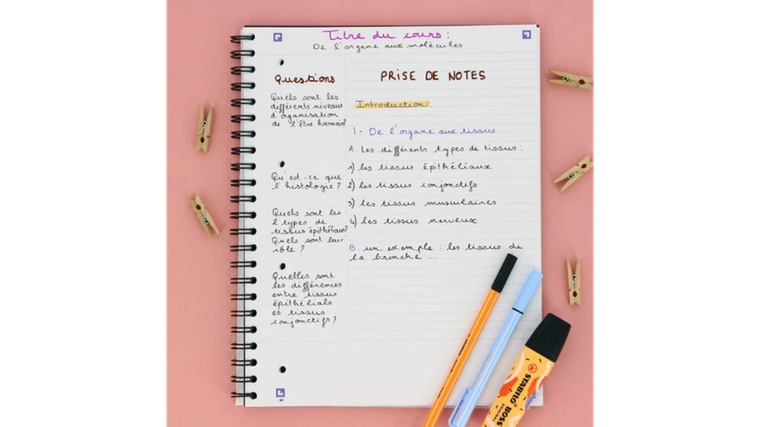 Titre du cours :
De l'organe aux molécules
Questions
Quels sont les
différents niveaux
d'organisation
de l'être humain?
Qu'est-ce que
l'histologie ?
Quels sont les
2 types de
tissus épithéliaux?
Quels sont leur
rôle ?
Quelles sont
les différences
entre tissus
épithélials
et tissus
conjonctifs ?
PRISE DE NOTES
Introduction
I - De l'organe aux tissus
A. Les différents types de tissus :
1) les tissus épithéliaux
2) les tissus conjonctifs
3) les tissus musculaires
4) les tissus nerveux
B. un exemple : les tissus de
la bronche ...
STABILO BOSS
ORIGINAL